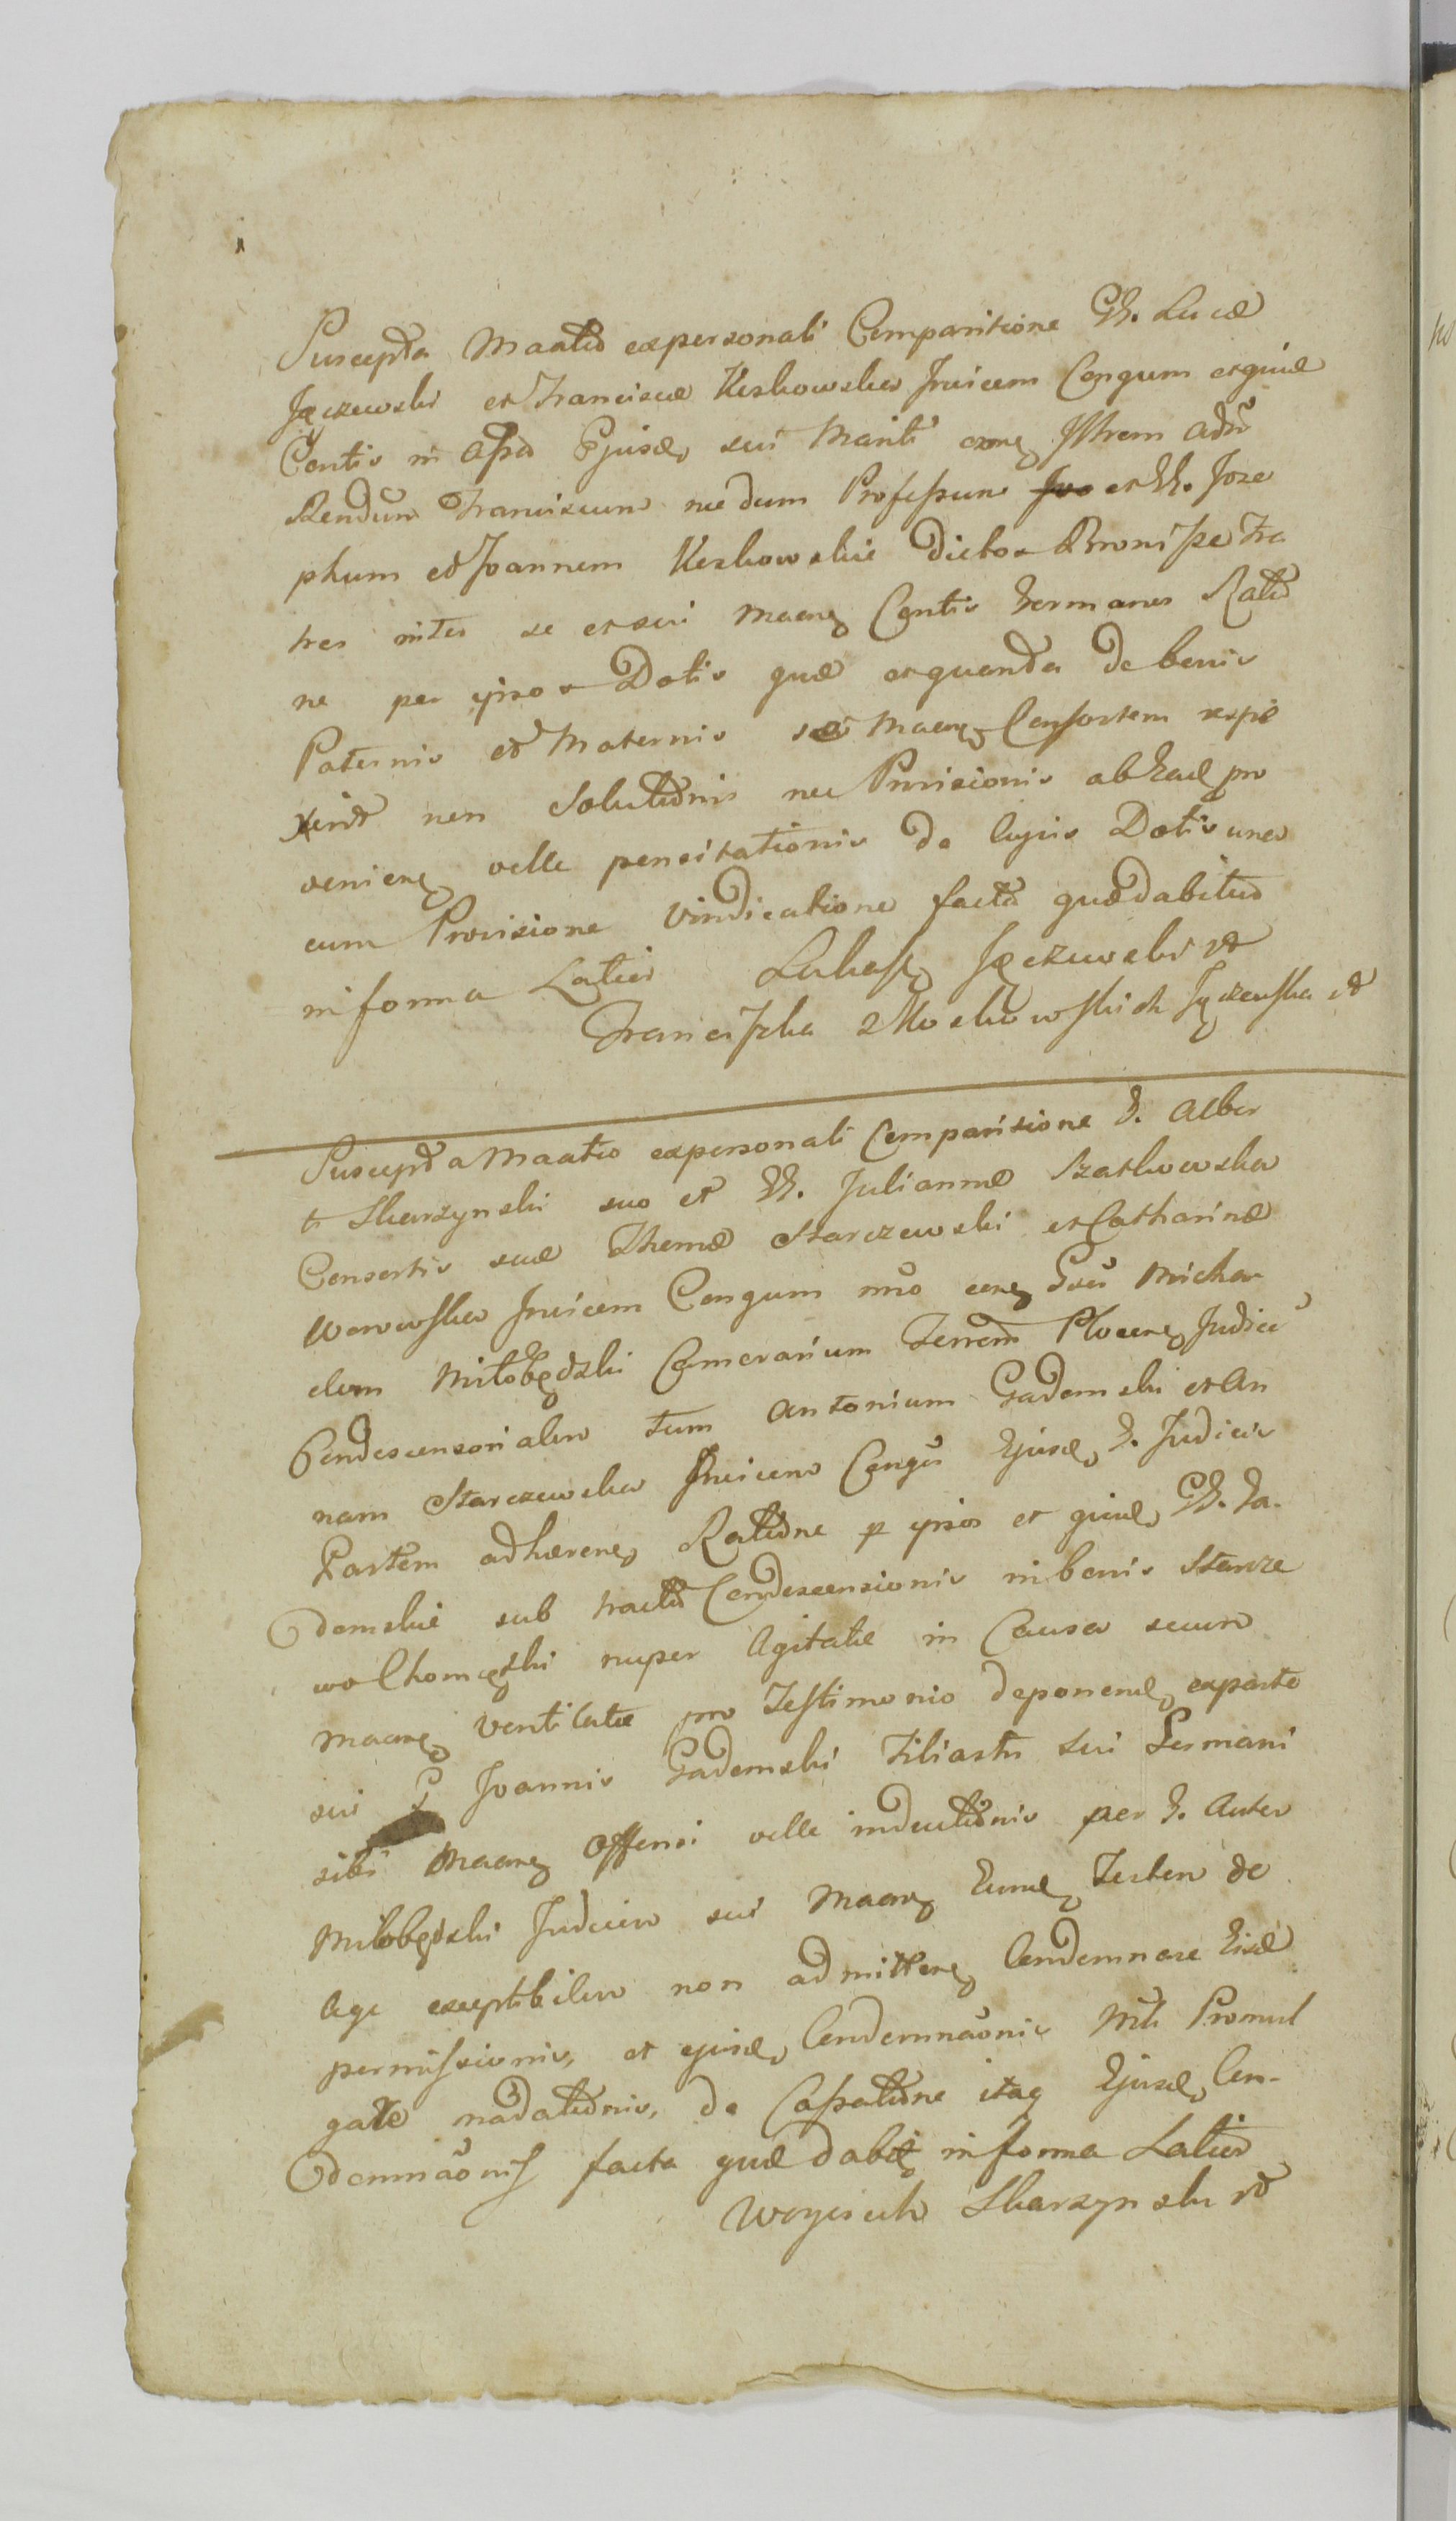 Suscepta Maatio ex personali Comparitione GG. Lucæ
Jączewski et Franciscæ Keskowska Invicem Congum et quidē
Contis in Assa Ejusd sui Mariti coram Illrem Adm̃
Rendum Franciscum nedum Professum et GG. Jose
phum et Joannem Keskowskie dictos Bronisze Fra
tres inter se et sui Maarg Contis Germanos Ratio
ne per ipsos Dotis quæ et quanta de bonis
Paternis et Maternis sui Maarg Consortem
non Solutionis nec Provisionis ab hac pro
venieng velle pensitationis de Cujus Dotis una
cum Provisione Vindicatione facta quæ dabitur
in forma Latiori Lukasz Jączewski
Franciszka z Koskowskich Jączewska

Suscepta Maatio ex personali Comparitione G. Alber
ti Skarzynski suo et GG. Juliannæ Szatkowska
Consortis suæ Thomæ Starczewski et Catharinæ
Worowska Invicem Congum nõie cong Gsũ Micha
elem Miłobędzki Camerarium Terrem Plocen Judicē
Condescensorialem tum Antonium Gadomski et An
nam Starczewska Invicem Congũ Ejusd G. Judicis
Partem adhæreng Ratione p ipsos et quid GG. Ga-
domskie sub tractu Condescensionis in bonis Starcze
wo Chomętki nuper Agitatæ in Causa secum
Maarg Ventilatæ pro Testimonio deponend ex parte
sui G Joannis Gadomski Filiastri sui Germani
sibi Maarg Offensi velle inductionis per G. Anter
Miłobędzki Judicem sui Maarg Eund Testem de
lege exceptibilem non admitterg Condemnare Eisd
permissionis, et ejusd Condemnãonis Mti Promul
gatæ nadationis, de Cassatione itaq Ejusd Con-
demnãonis facta quæ dabit in forma Latiori
Woyciech Skarzynski